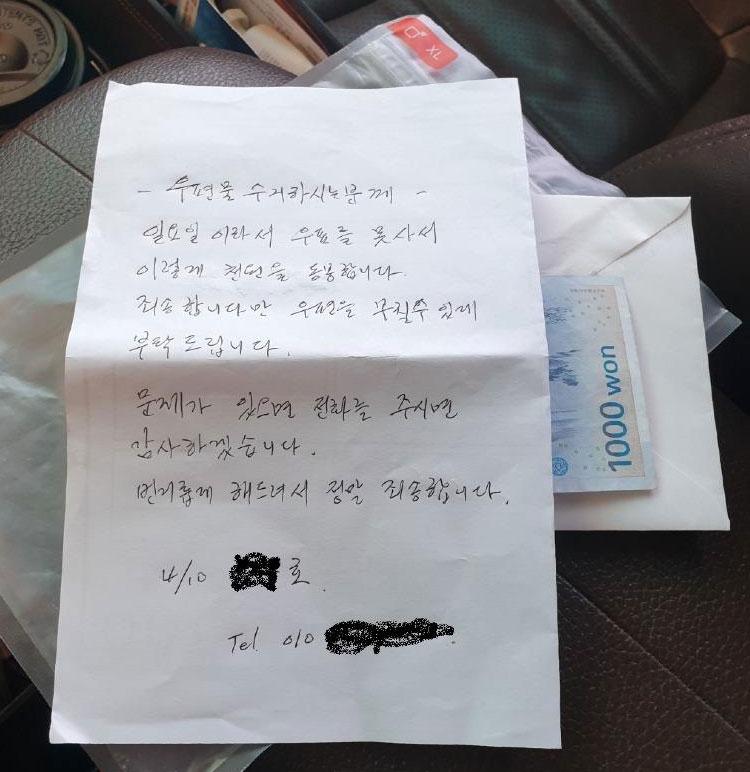 - 우편물 수거하시는분께 -
일요일 이라서 우표를 못사서
이렇게 천원을 동봉합니다.
죄송합니다만 우편을 부칠수 있게
부탁드립니다.
문제가 있으면 전화를 주시면
감사하겠습니다.
번거롭게 해드려서 정말 죄송합니다.
4/10 호.
Tel. 010
1000 won
XL